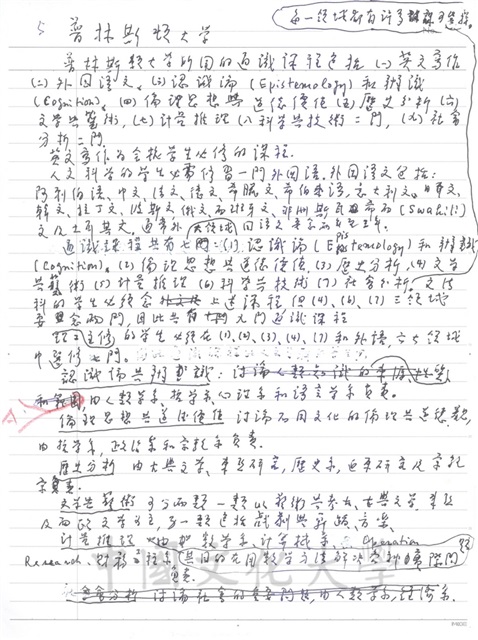 每一領域都有許多課可選擇。
5 普林斯頓大學
普林斯頓大學所開的通識課程包括(一)英文寫作
(二)外國語文。(三)認識論(Epistemology)和辨識
(Cognition)。(四)倫理思想與道德價值(五)歷史分析(六)
文學與藝術,(七)計量推理(八)科學與技術二門,(九)社會
分析二門。
英文寫作為全校學生必修的課程.
人文科學的學生必需修習一門外國語.外國語文包括:
阿剌伯語、中文、法文、德文、希臘文、希伯來語、意大利文、日文、
韓文、拉丁文、波斯文、俄文、西班牙文、非洲斯瓦希里(Swahili)
文及土耳其文。通常外國語文要念
通識課程共有七門:(1).認識論(Epistemology)和辨識
(Cognition)。(2)倫理思想與道德價值,(3)歷史分析,(4)文學
與藝術(5)計量推理(6)科學與技術(7)社會分析。文法
科的學生必須念上述課程但(4)、(6)、(7)三領域
要念兩門,因此共有十門通識課程
理工主修的學生必須在(1)、(2)、(3)、(4)、(7)和外語六領域
中選修七門。
認識論與辨識:討論人類知識的來源、性質
和範圍,由人類學系、哲學系、心理系和語言學系負責。
倫理思想與道德價值 討論不同文化的倫理與道德觀,
由哲學系,政治系和宗教系負責。
歷史分析 由古典文學、東亞研究,歷史系,近東研究及宗教
系負責。
文學與藝術 可分兩類一類以藝術與考古、古典文學、東亞
及西歐文學為主,另一類包括戲劇與舞蹈、音樂。
計量推理 由數學系、計算機系、Operation
Research、財務工程系,其目的是用數學方法解決各種實際問題
負責.
社會分析 討論社會的重要問題,由人類學系,經濟系.
中國文化大學